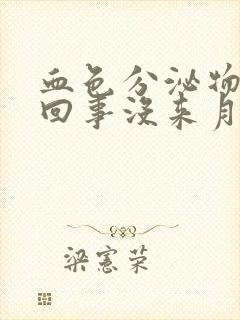 血色分泌物
回事没来月
梁宪荣